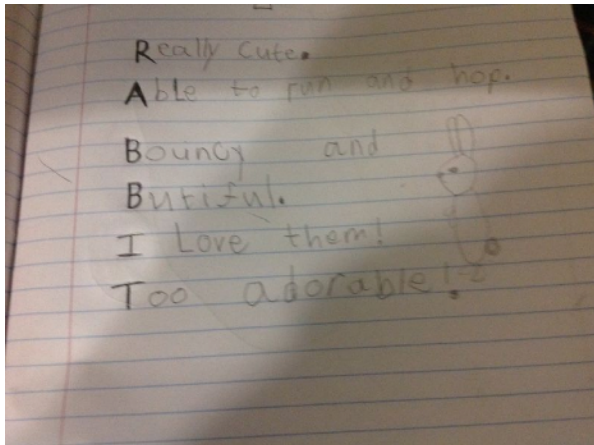 Really cute.
Able to run and hop.
Bouncy and
Butiful.
I Love them!
Too adorable!